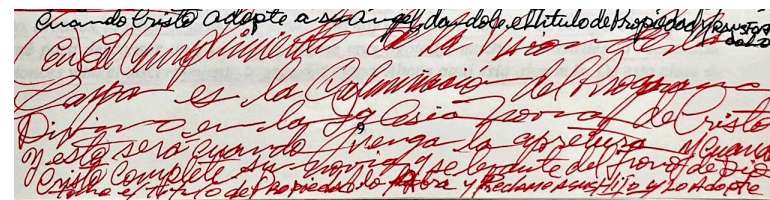 Cuando Cristo adopte a su Angel, dandole el titulo de Propiedad y transfor
dolo
En el Cumplimiento de la Vision de la
Carpa es la Culminación del Programa
Divino en la Iglesia novia de Cristo
y esto será cuando venga la apretura y cuando
Cristo complete su novia y se levante del trono de Dios
tome el titulo de Propiedad lo Abra y Reclame a sus Hijos y lo Adopte